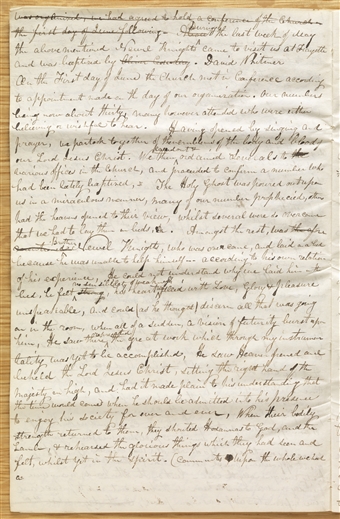 was organized, we had agreed to hold a conference of the Church on
the first day of June following. During the last week of May
the above mentioned Newel Knight came to visit us at Fayette
and was baptized by David Whitmer
On the first day of June the Church met in Conference according
to appointment made on the day of our organization. Our numbers
being now about thirty, many however attended who were either
believing, or anxious to hear. Having opened by singing and
prayer, we partook together of the emblems of the body and blood of
our Lord Jesus Christ. We then ordained several to the
various offices in the Church, and proceeded to confirm a number who
had been lately baptized, The Holy Ghost was poured out upon
us in a miraculous manner, many of our number prophecied, others
had the heavens opened to their view, whilst several were so overcome
that we had to lay them on beds, &c. Amongst the rest, was
Newel Knight, who was overcome, and laid on a bed
because he was unable to help himself. according to his own relation
of his experience, He could not understand why we laid him on the
bed, he felt no sensibility of weakness his heart filled with Love, Glory & pleasure
unspeakable, and could (as he thought) discern all that was going
on in the room, when all of a sudden, a vision of futurity burst upon
him, He saw there, the great work which through my instrumen-
tality was yet to be accomplished, He saw Heaven opened and
beheld the Lord Jesus Christ, sitting at the right hand of the
majesty on high, and had it made plain to his understanding that
the time would come when he should be admitted into his presence
to enjoy his society for ever and ever, When their bodily
strength returned to them, they shouted Hosannas to God, and the
Lamb, & rehearsed the glorious things which they had seen and
felt, whilst yet in the spirit. upon the whole